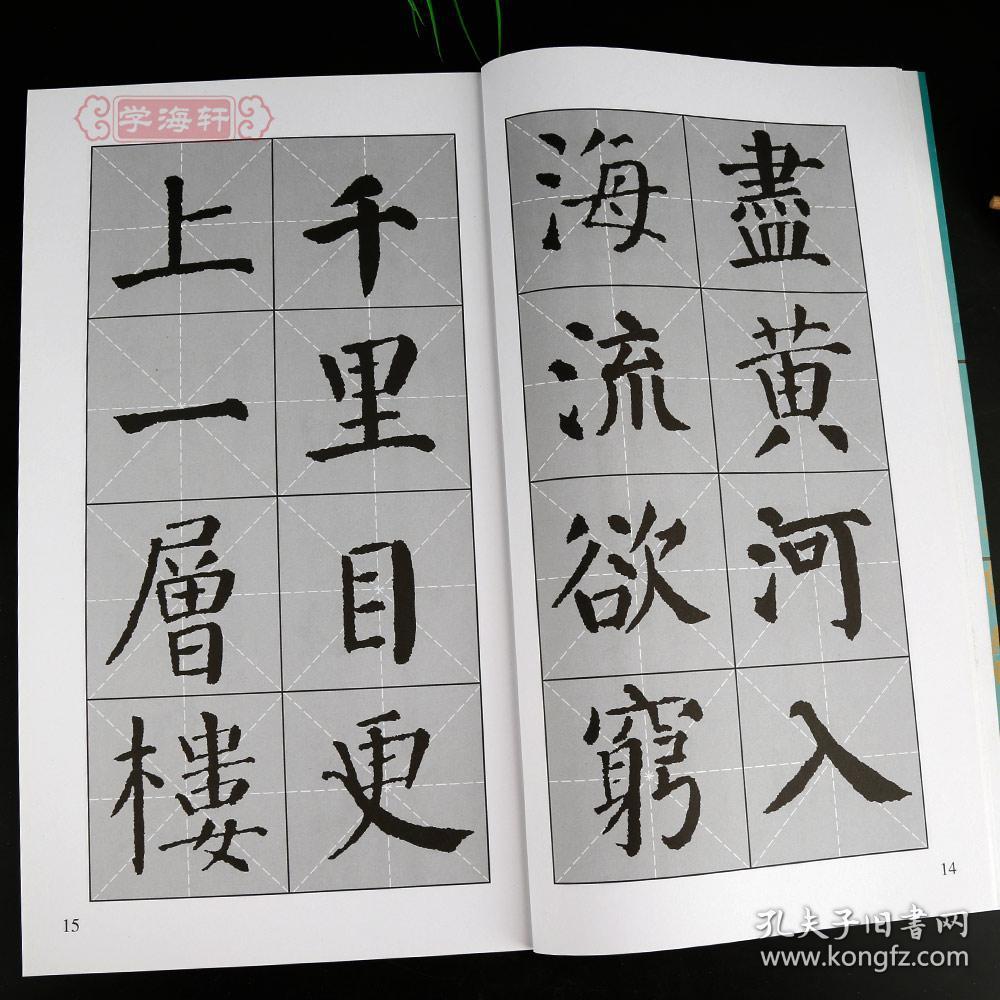 盡黄河入
海流欲窮
千里目更
上一層樓
14
15
学海轩
孔夫子旧書网
www.kongfz.com